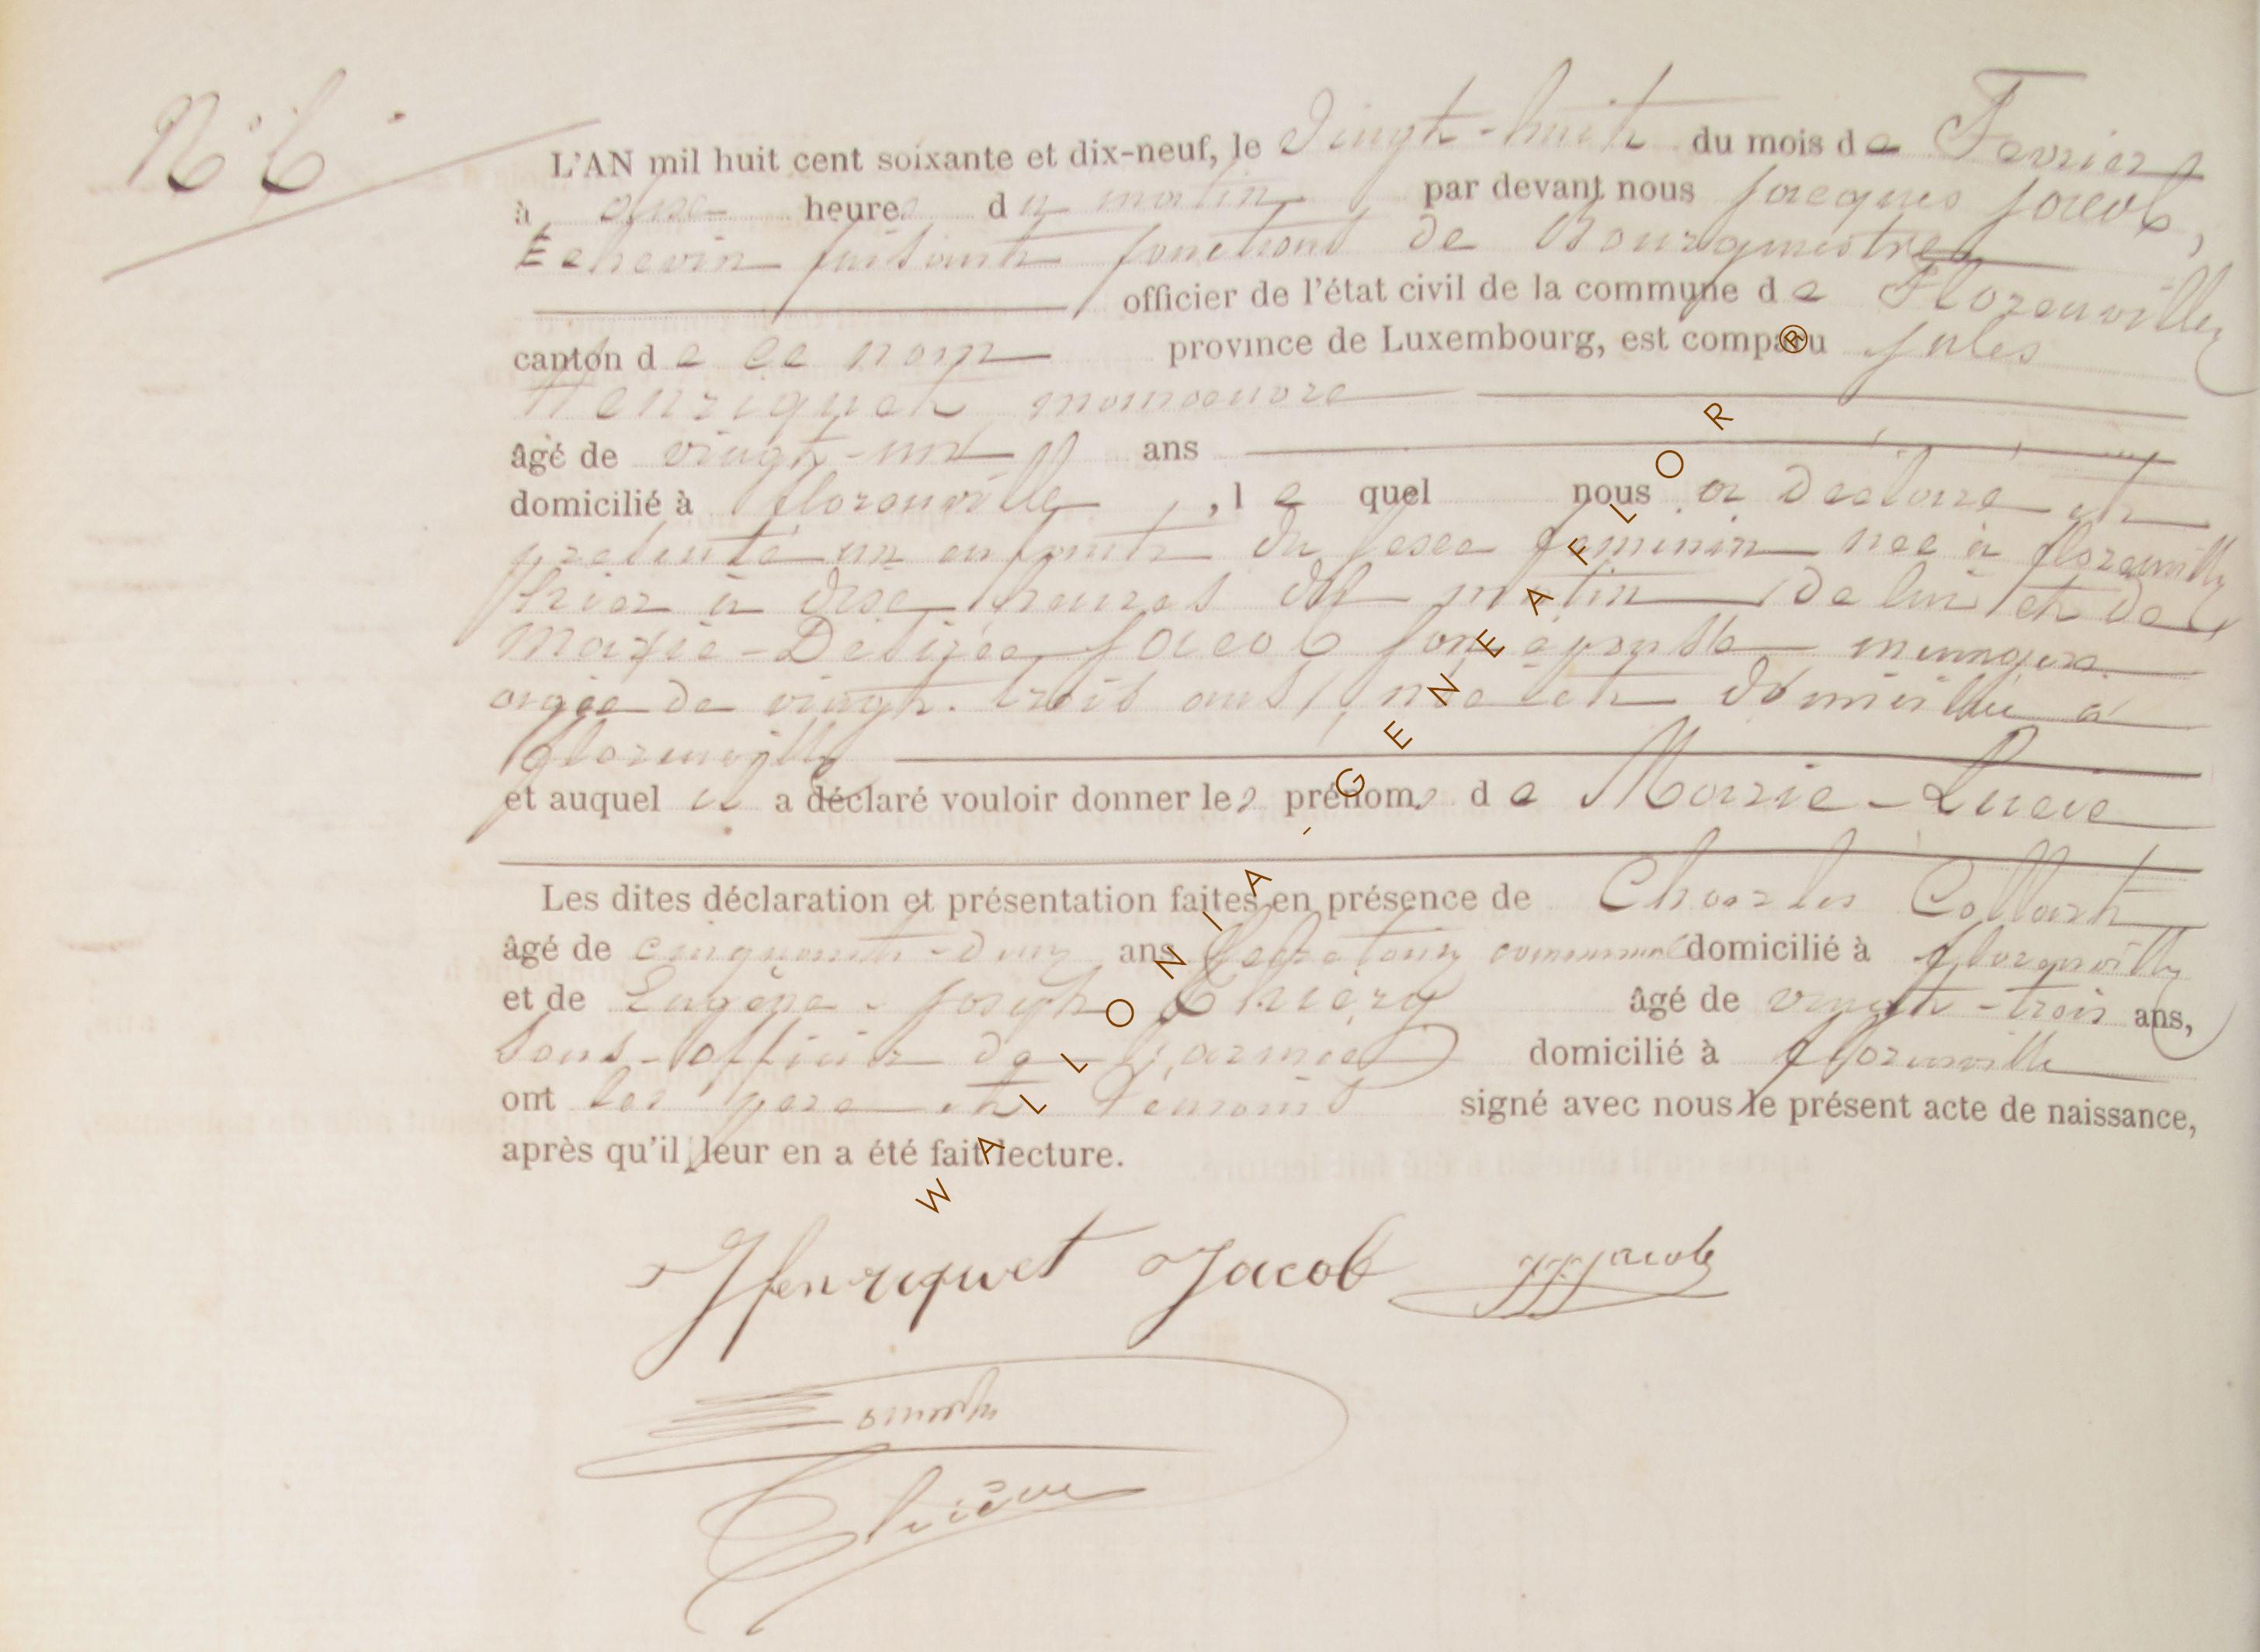 N° 6
L'AN mil huit cent soixante et dix-neuf, le Vingt-huit du mois de Fevrier
à onse heures du matin par devant nous Jacques Jacob,
Echevin faisant fonctions de Bourgmestre
officier de l'état civil de la commune de Florenville
canton de ce nom province de Luxembourg, est comparu Jules
Henriquet manoeuvre
âgé de vingt-un ans
domicilié à florenville, le quel nous a déclaré et
présenté un enfant du sexe feminin née à florenville
hier à dix heures du matin de lui et de
Marie-Desirée Jacob son épouse menagère
agée de vingt-trois ans, née et domiciliée à
florenville
et auquel il a déclaré vouloir donner les prénoms de Marie-Lucie
Les dites déclaration et présentation faites en présence de Charles Collart
âgé de cinquante-deux ans Secretaire communal domicilié à florenville
et de Eugène-Joseph Thiéry âgé de vingt-trois ans,
Sous-officier de l'armée domicilié à florenville
ont les père et témoins signé avec nous le présent acte de naissance,
après qu'il leur en a été fait lecture.
Henriquet Jacob JJJacob
WALLONIA - GENEAFLOR ®